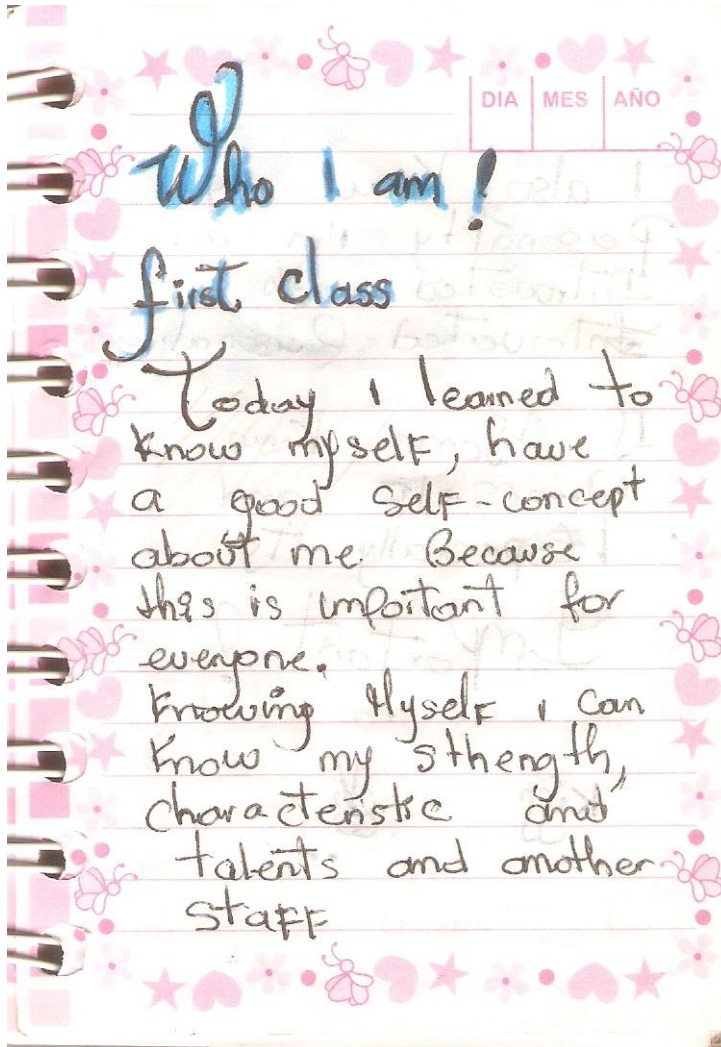 DIA MES AÑO
Who I am!
first class
Today I learned to
know myself, have
a good self-concept
about me Because
this is important for
everyone.
Knowing Myself I can
know my sthength,
characteristic and
talents and another
staff